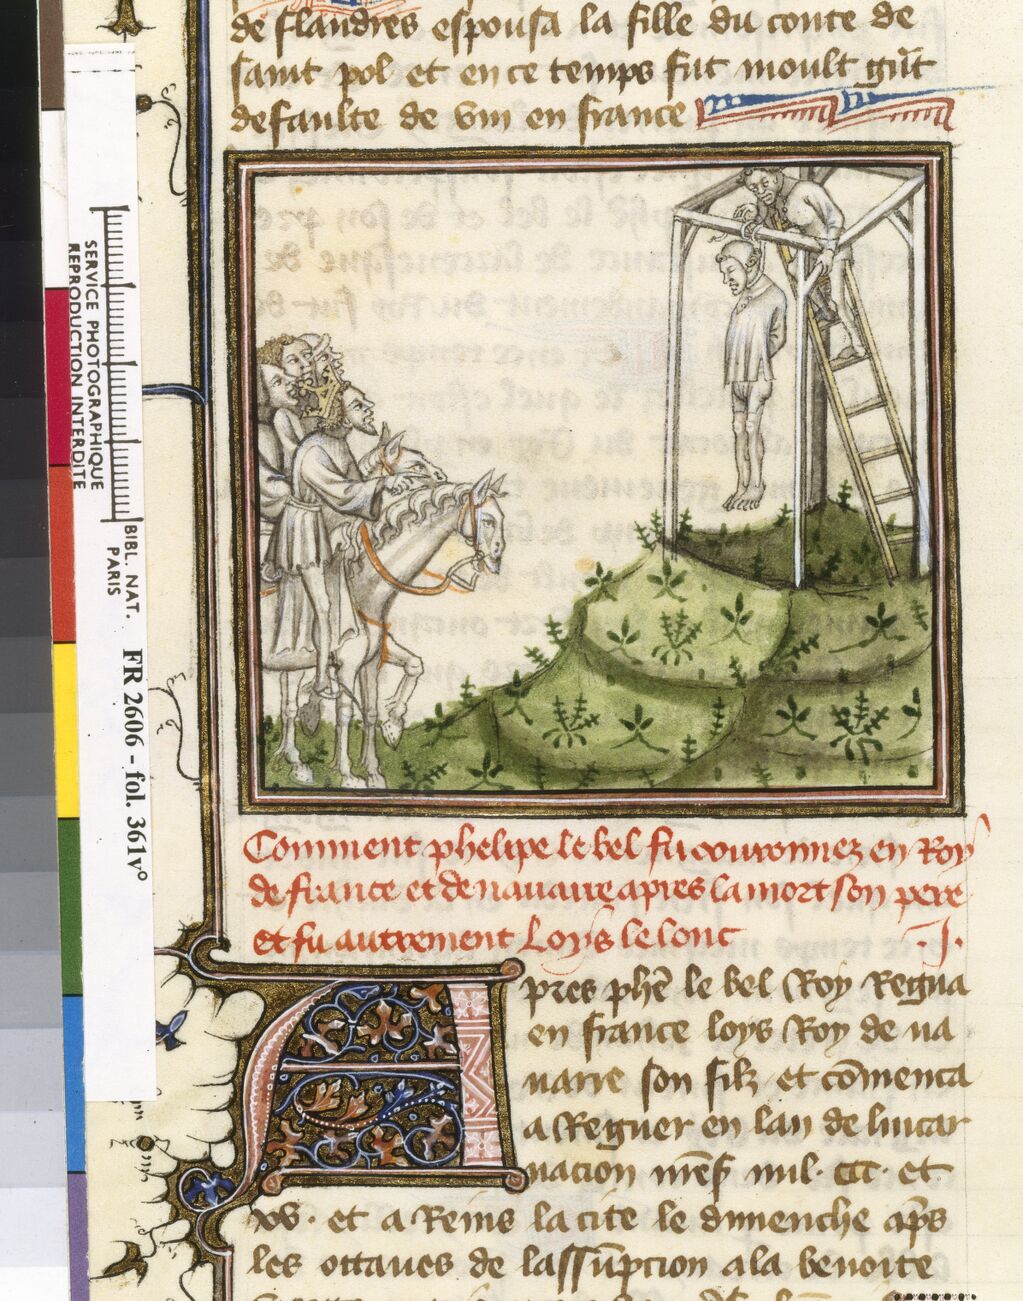 de flandres espousa la fille du conte de
saint pol et en ce temps fut moult gr̃t
defaulte de vin en france
Comment phelipe le bel fu couronnez en Roy
de france et de nauarre apres la mort son pere
et fu autrement Loys le lonc .J.
Apres phẽ le bel Roy Regna
en france loys Roy de na
uarre son filz et cõmenca
a Regner en lan de lincar
nacion mil. ccc et
xv. et a Reins la cite le dimenche ap̃s
les ottaues de lassũpcion a la benoite
SERVICE PHOTOGRAPHIQUE
REPRODUCTION INTERDITE
BIBL. NAT.
PARIS
FR 2606 - fol. 361v°